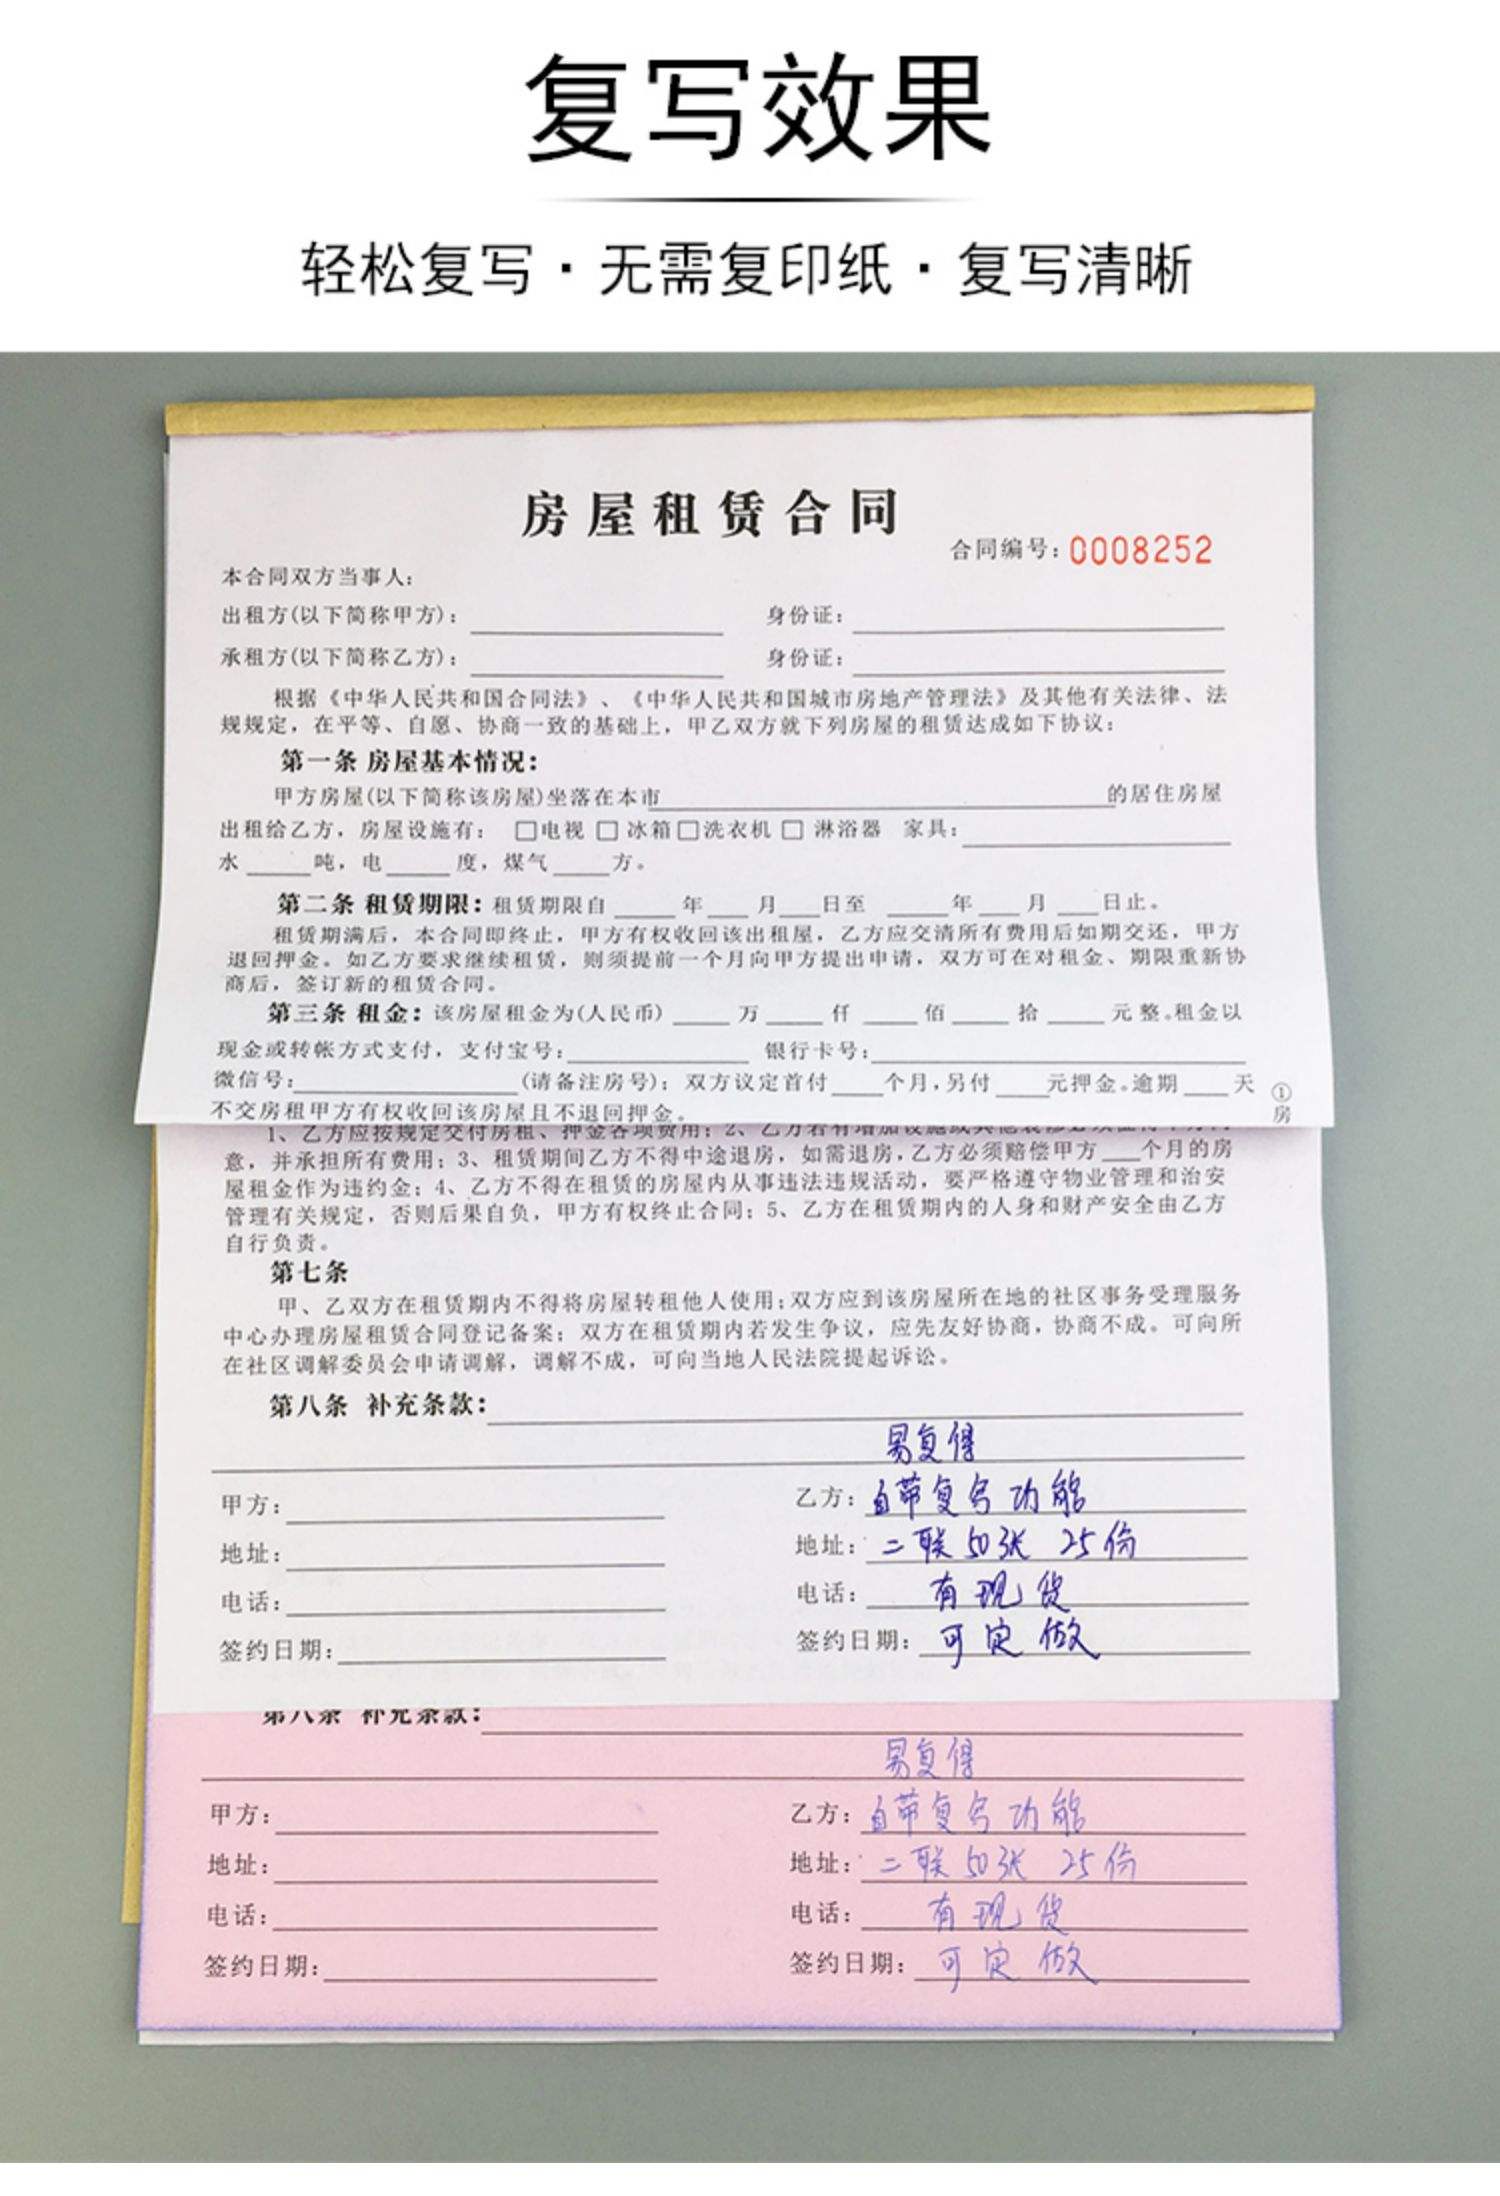 复写效果
轻松复写·无需复印纸·复写清晰
房屋租赁合同
合同编号：0008252
本合同双方当事人：
出租方(以下简称甲方)：________ 身份证：________
承租方(以下简称乙方)：________ 身份证：________
根据《中华人民共和国合同法》、《中华人民共和国城市房地产管理法》及其他有关法律、法
规规定，在平等、自愿、协商一致的基础上，甲乙双方就下列房屋的租赁达成如下协议：
第一条 房屋基本情况：
甲方房屋(以下简称该房屋)坐落在本市________的居住房屋
出租给乙方，房屋设施有：□电视□冰箱□洗衣机□淋浴器 家具：________
水____吨，电____度，煤气____方。
第二条 租赁期限：租赁期限自____年___月___日至____年___月___日止。
租赁期满后，本合同即终止，甲方有权收回该出租屋，乙方应交清所有费用后如期交还，甲方
退回押金。如乙方要求继续租赁，则须提前一个月向甲方提出申请，双方可在对租金、期限重新协
商后，签订新的租赁合同。
第三条 租金：该房屋租金为(人民币)____万____仟____佰____拾____元整。租金以
现金或转帐方式支付，支付宝号：________ 银行卡号：________
微信号：________(请备注房号)；双方议定首付___个月，另付___元押金。逾期___天
不交房租甲方有权收回该房屋且不退回押金。
①房
1、乙方应按规定交付房租、押金各项费用；2、乙方若有增加设施或其他装修必须
意，并承担所有费用；3、租赁期间乙方不得中途退房，如需退房，乙方必须赔偿甲方___个月的房
屋租金作为违约金；4、乙方不得在租赁的房屋内从事违法违规活动，要严格遵守物业管理和治安
管理有关规定，否则后果自负，甲方有权终止合同；5、乙方在租赁期内的人身和财产安全由乙方
自行负责。
第七条
甲、乙双方在租赁期内不得将房屋转租他人使用；双方应到该房屋所在地的社区事务受理服务
中心办理房屋租赁合同登记备案；双方在租赁期内若发生争议，应先友好协商，协商不成。可向所
在社区调解委员会申请调解，调解不成，可向当地人民法院提起诉讼。
第八条 补充条款：________
易复得
甲方：________ 乙方：自带复写功能
地址：________ 地址：二联50张 25份
电话：________ 电话：有现货
签约日期：________ 签约日期：可定做
第八条 补充条款：________
易复得
甲方：________ 乙方：自带复写功能
地址：________ 地址：二联50张 25份
电话：________ 电话：有现货
签约日期：________ 签约日期：可定做